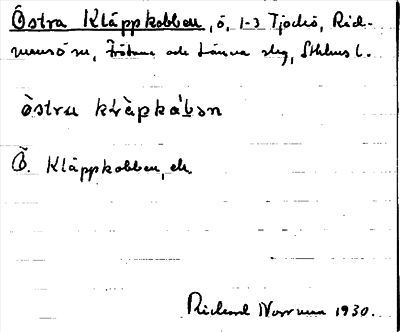 Östra Kläppkobben, ö, 1-3 Tjockö, Räd-
mansö sn, Frötuna och Länna skg, Sthlms l.
òstra kläpkáƀən
Ö. Kläppkobben, ek.
Rickard Norman 1930.